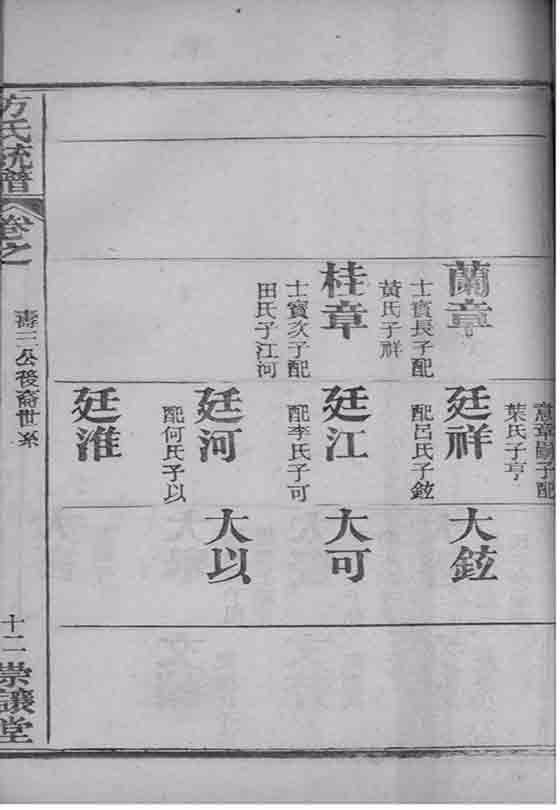 蘭章
士賓長子配
黃氏子祥
桂章
士賓次子配
田氏子江河
憲章嗣子配
葉氏子亨
廷祥
配呂氏子鉉
廷江
配李氏子可
廷河
配何氏子以
廷淮
大鉉
大可
大以
方氏統譜
卷之
壽三公後裔世系
十二
崇讓堂